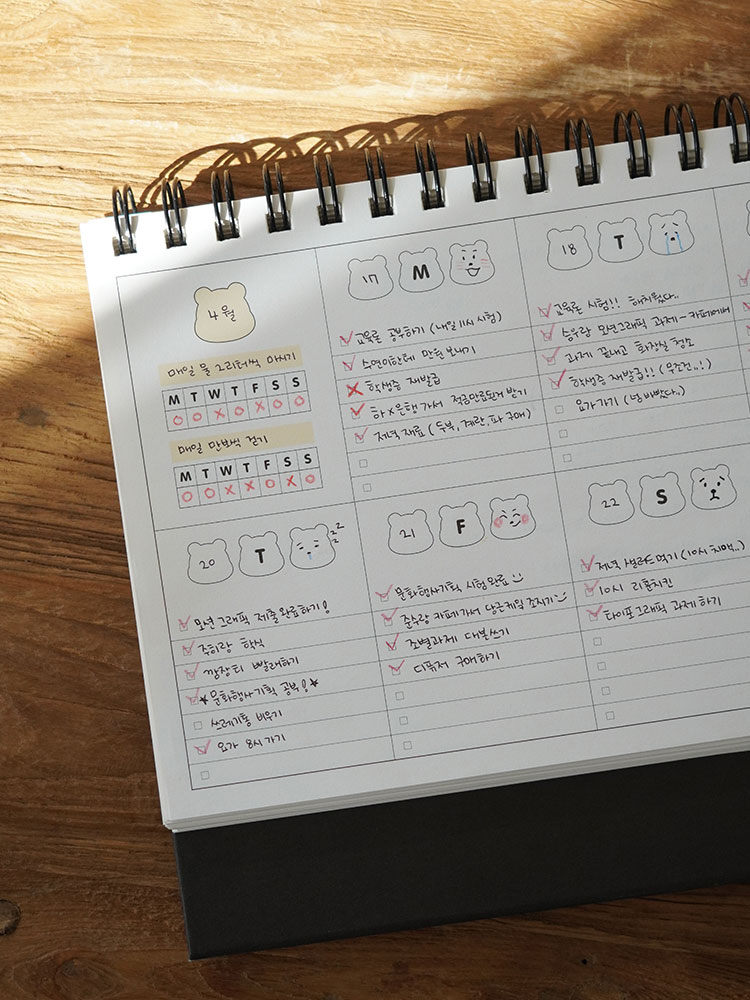 4월
매일 물 2리터씩 마시기
M T W T F S S
O O X O X O O
매일 만보씩 걷기
M T W T F S S
O O X X O X O
17 M
교육론 공부하기 (내일 11시 시험)
소연이한테 만원 보내기
학생증 재발급
하x은행 가서 적금만료된거 받기
저녁 재료 (두부, 계란, 파 구매)
18 T
교육론 시험!! 해치웠다..
승우랑 모션그래픽 과제 - 카페에서
과제 끝내고 화장실 청소
학생증 재발급!! (무조건..!)
요가 가기 (넘 바빴다..)
20 T
zzz
모션 그래픽 제출 완료하기!
주희랑 학식
깜장티 빨래하기
★문화행사기획 공부!★
쓰레기통 비우기
요가 8시 가기
21 F
문화행사기획 시험 완료
준수랑 카페가서 당근케익 조지기
조별과제 대본쓰기
디퓨저 구매하기
22 S
저녁 샐러드 먹기 (10시 치맥..)
10시 치킨
타이포그래픽 과제 하기